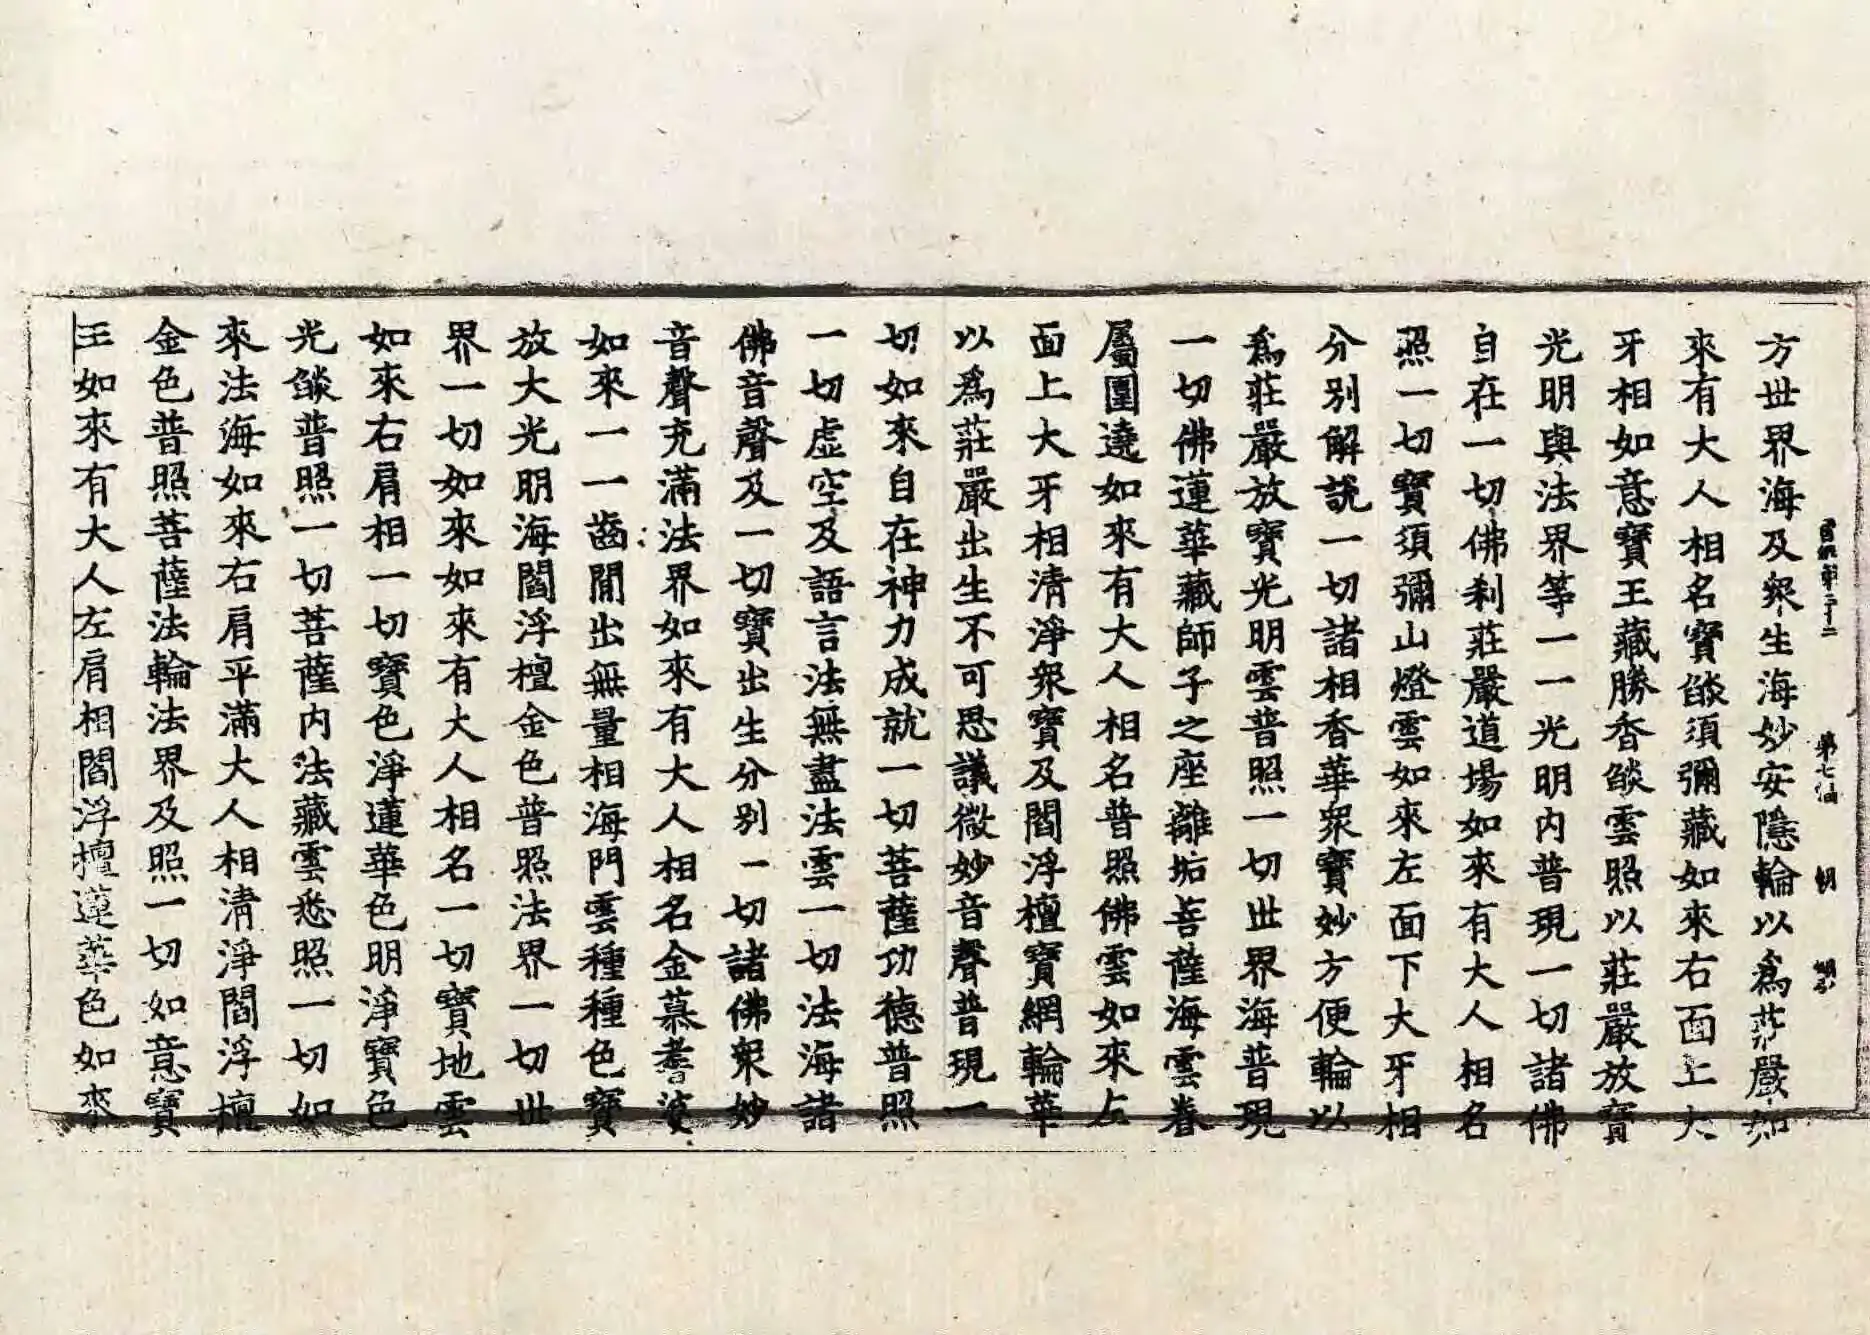 第三十二 第七
方世界海及衆生海妙安隱輪以爲莊嚴如
來有大人相名寶㷔須彌藏如來右面上大
牙相如意寶王藏勝香㷔雲照以莊嚴放寶
光明與法界等一一光明内普現一切諸佛
自在一切佛刹莊嚴道場如來有大人相名
照一切寶須彌山燈雲如來左面下大牙相
分別解說一切諸相香華衆寶妙方便輪以
爲莊嚴放寶光明雲普照一切世界海普現
一切佛蓮華藏師子之座離垢菩薩海雲眷
屬圍遶如來有大人相名普照佛雲如來左
面上大牙相清淨衆寶及閻浮檀寶網輪華
以爲莊嚴出生不可思議微妙音聲普現一
切如來自在神力成就一切菩薩功德普照
一切虛空及語言法無盡法雲一切法海諸
佛音聲及一切寶出生分別一切諸佛衆妙
音聲充滿法界如來有大人相名金慕耆婆
如來一一齒間出無量相海門雲種種色寶
放大光明海閻浮檀金色普照法界一切世
界一切如來如來有大人相名一切寶地雲
如來右肩相一切寶色淨蓮華色明淨寶色
光㷔普照一切菩薩内法藏雲悉照一切如
來法海如來右肩平滿大人相清淨閻浮檀
金色普照菩薩法輪法界及照一切如意寶
王如來有大人左肩相閻浮檀蓮華色如來